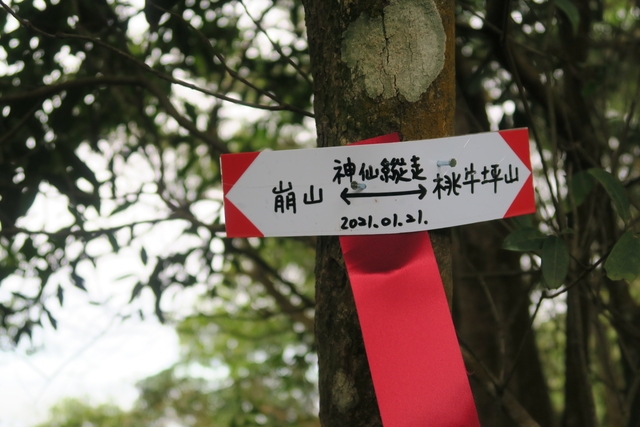 神仙縱走
崩山 ↔ 桃牛坪山
2021.01.21.